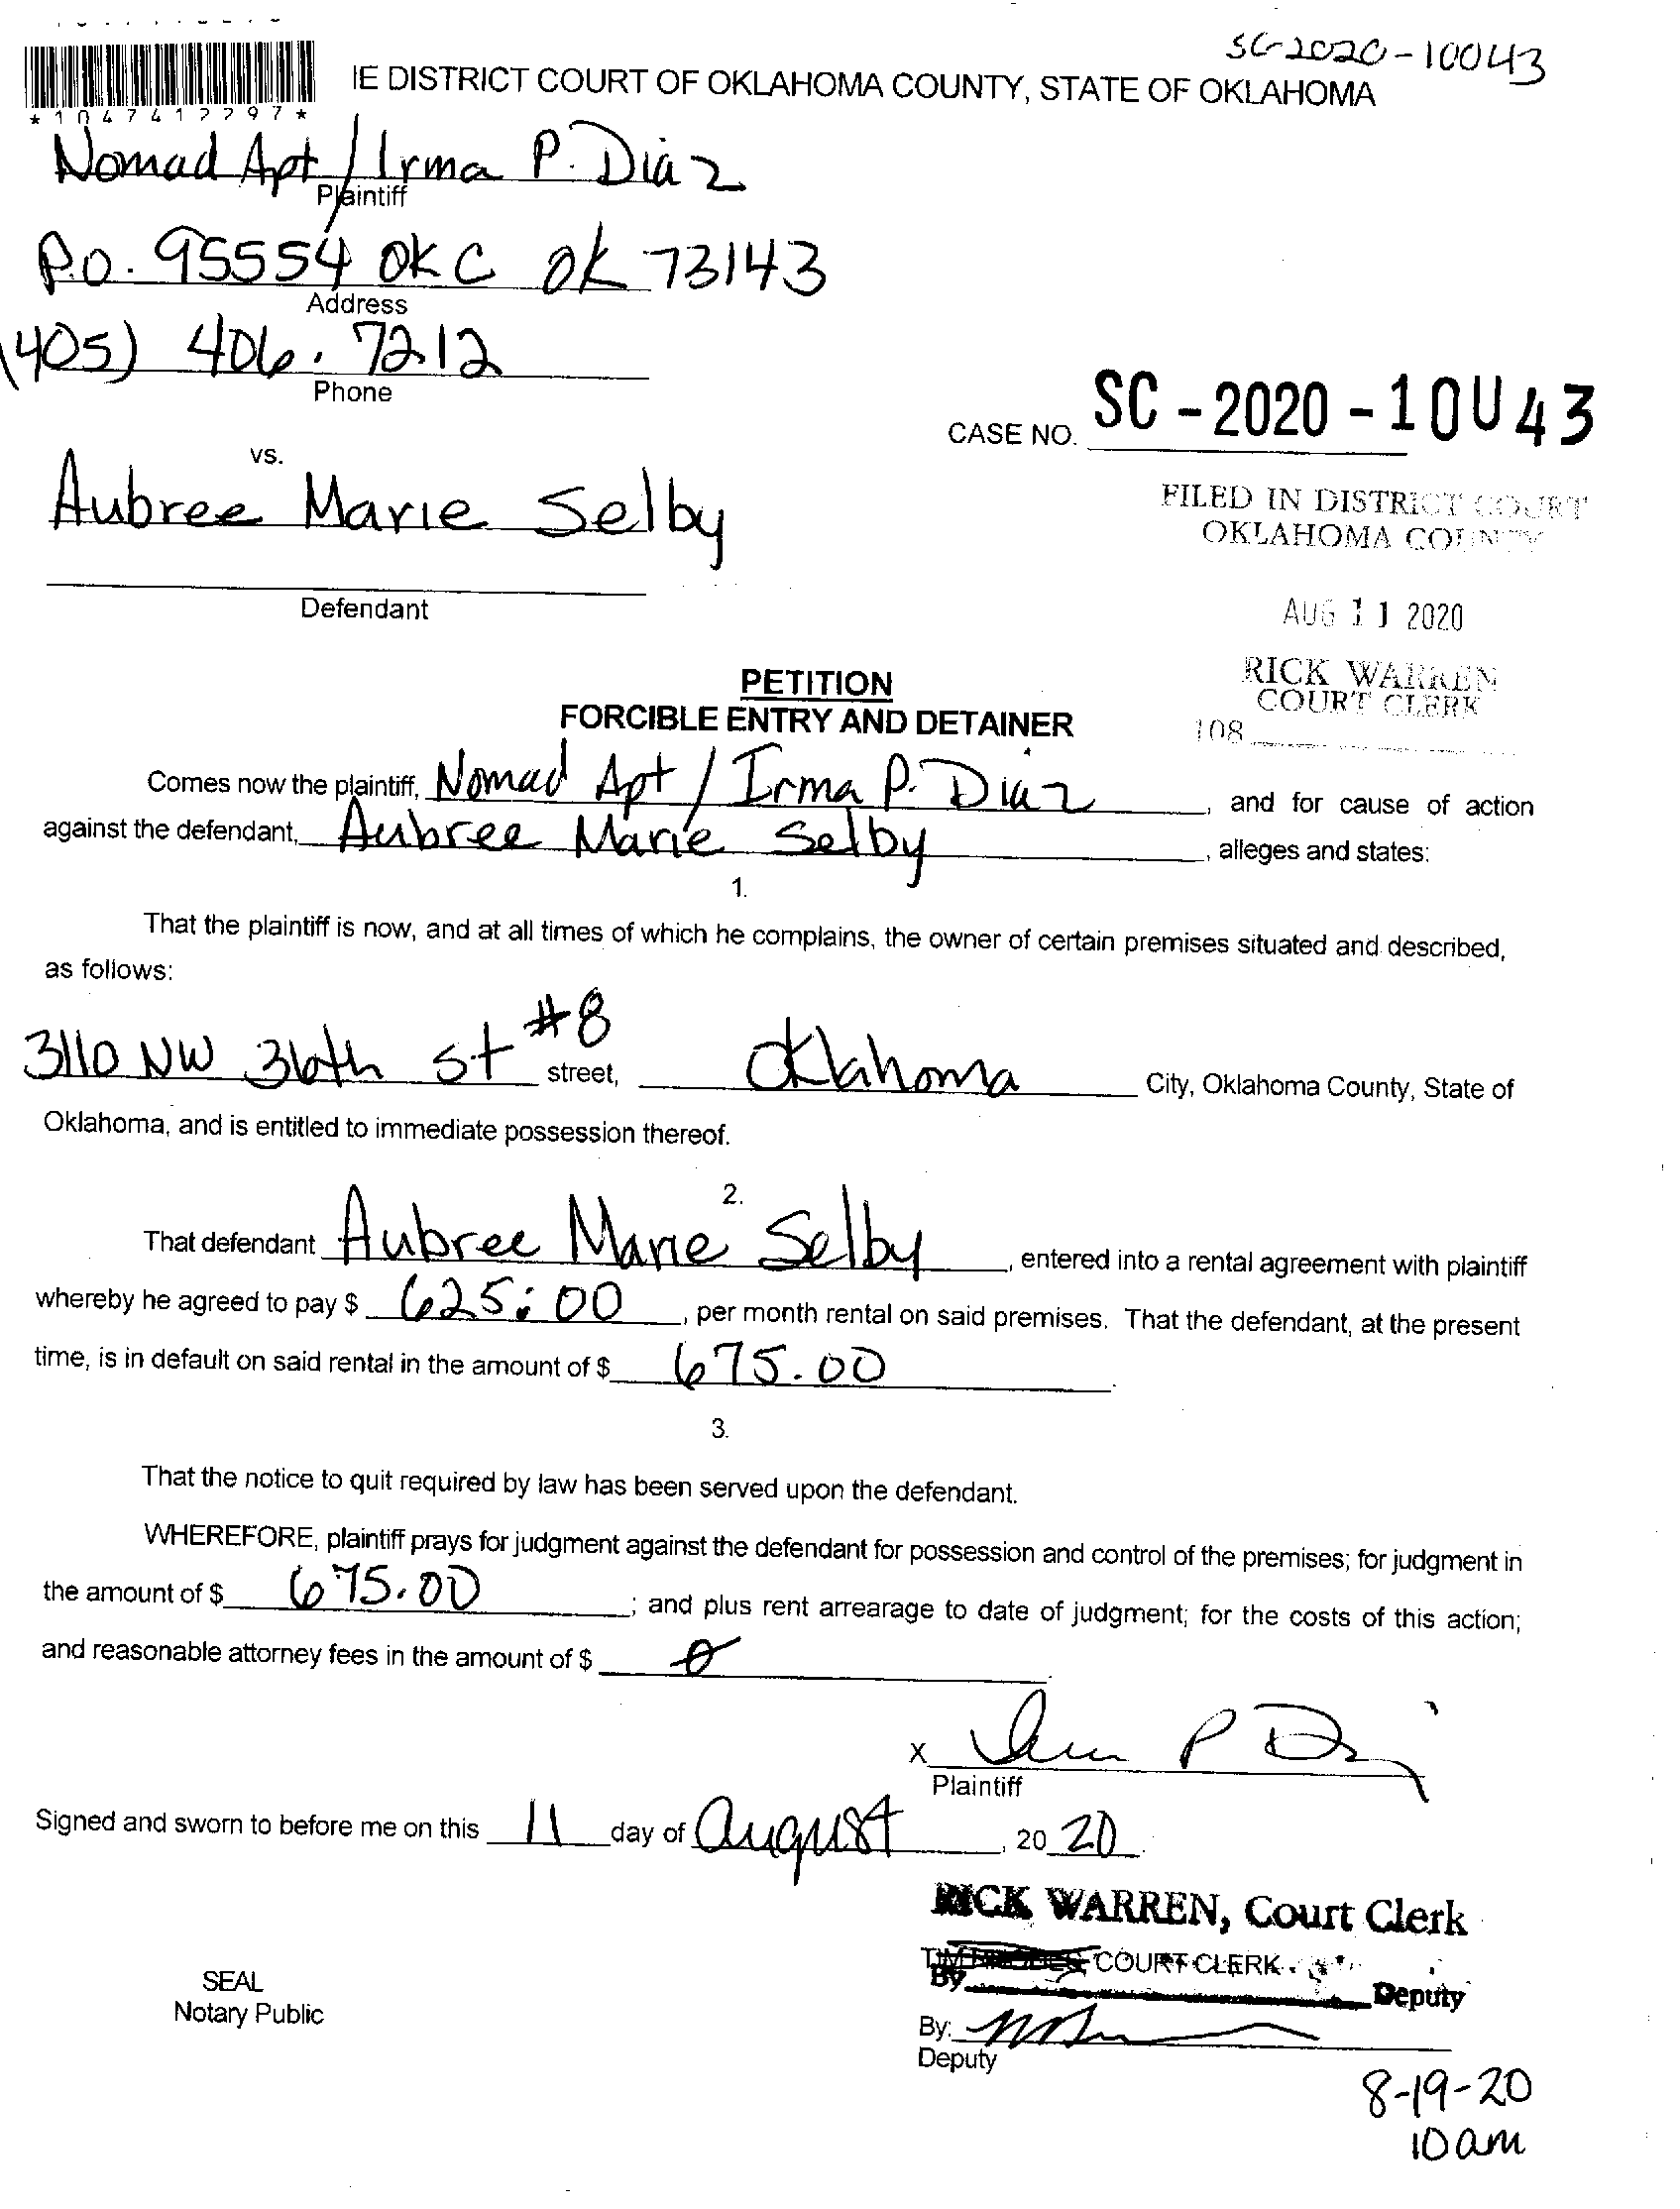 SC-2020-10043
IE DISTRICT COURT OF OKLAHOMA COUNTY, STATE OF OKLAHOMA
*1047412297*
Nomad Apt / Irma P. Diaz
Plaintiff
P.O. 95554 OKC OK 73143
Address
(405) 406.7212
Phone
CASE NO. SC-2020-10U43
vs.
Aubree Marie Selby
Defendant
FILED IN DISTRICT COURT
OKLAHOMA COUNTY
AUG 11 2020
RICK WARREN
COURT CLERK
108
PETITION
FORCIBLE ENTRY AND DETAINER
Comes now the plaintiff, Nomad Apt / Irma P. Diaz, and for cause of action
against the defendant, Aubree Marie Selby, alleges and states:
1.
That the plaintiff is now, and at all times of which he complains, the owner of certain premises situated and described,
as follows:
3110 NW 36th St #8 street, Oklahoma City, Oklahoma County, State of
Oklahoma, and is entitled to immediate possession thereof.
2.
That defendant Aubree Marie Selby, entered into a rental agreement with plaintiff
whereby he agreed to pay $ 625.00, per month rental on said premises. That the defendant, at the present
time, is in default on said rental in the amount of $ 675.00.
3.
That the notice to quit required by law has been served upon the defendant.
WHEREFORE, plaintiff prays for judgment against the defendant for possession and control of the premises; for judgment in
the amount of $ 675.00; and plus rent arrearage to date of judgment; for the costs of this action;
and reasonable attorney fees in the amount of $ 0.
X
Plaintiff
Signed and sworn to before me on this 11 day of August, 2020.
RICK WARREN, Court Clerk
COURT CLERK
By Deputy
SEAL
Notary Public
By:
Deputy
8-19-20
10am